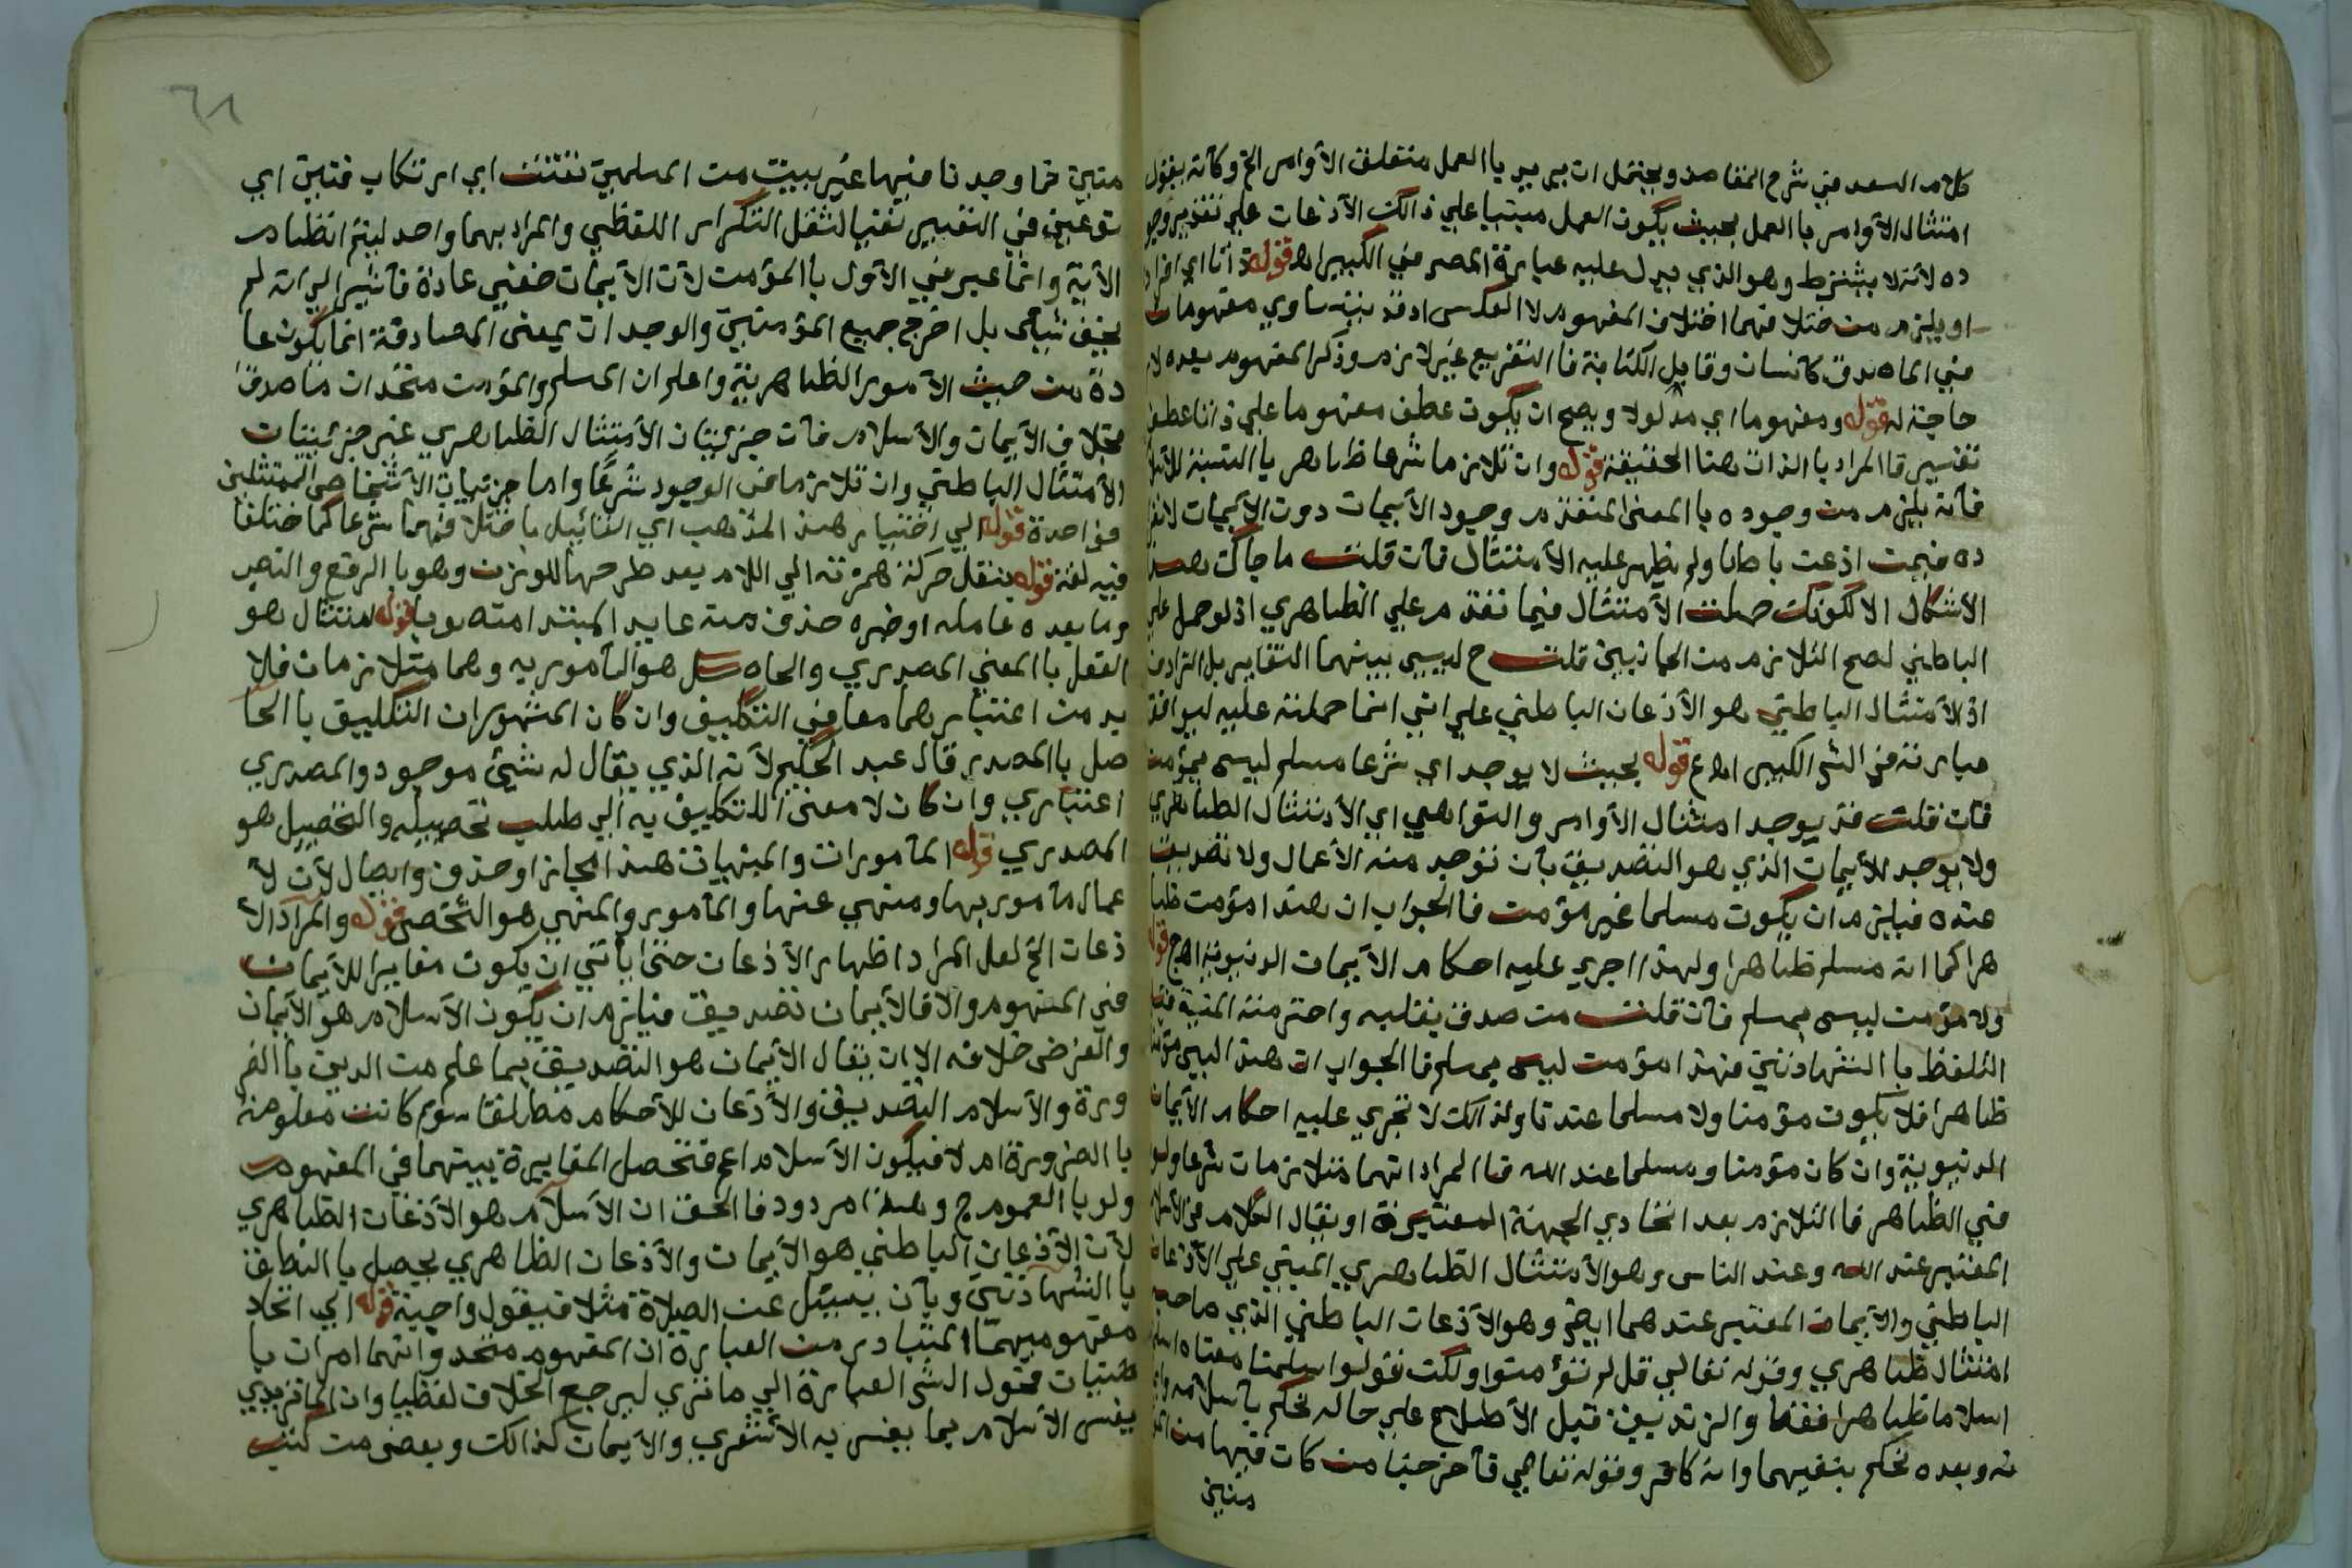 كلام السعد في شرح المقاصد ويحتمل ان يريد بالعمل متعلق الأوامر الخ وكأنه يقول
امتثال الأوامر بالعمل بحيث يكون العمل مبنيا علي ذالك الأذعان علي تقدير وجو
ده لأنه لا يشترط وهو الذي يدل عليه عبارة المصر في الكبير اه قوله ذاتا اي افراد
او يلزم من ختلافهما اختلاف المفهوم لا العكس اد قد يتساوي مفهومان
في الماصدق كانسان وقابل الكتابة فا التفريع غير لازم وذكر المفهوم بعده لا
حاجة له قوله ومفهوما اي مدلولا ويصح ان يكون عطف مفهوما علي ذاتا عطف
تفسير فا المراد با الذات هنا الحقيقة قوله وان تلازما شرعا ظاهر با النسبة للأسلا
فأنه يلزم من وجوده با المعنى المتقدم وجود الأيمان دون الأيمان لانفرا
ده فيمن اذعن باطنا ولم يظهر عليه الأمتثال فأن قلت ما جاك هذا
الأشكال الا لكونك حملت الأمتثال فيما تقدم علي الظاهري اذ لو حمل علي
الباطني لصح التلازم من الجانبين قلت ح ليس بينهما التغاير بل الترادف
اذ الأمتثال الباطني هو الأذعان الباطني علي انني انما حملته عليه ليوافق
عبارته في الشر الكبير اه ع قوله بحيث لا يوجد اي شرعا مسلم ليس بمؤمن
فأن قلت قد يوجد امتثال الأوامر والنواهي اي الأمتثال الظاهري
ولا يوجد الأيمان الذي هو التصديق بأن توجد منه الأعمال ولا تصديق
عنده فيلزم ان يكون مسلما غير مؤمن فا الجواب ان هذا مؤمن ظا
هرا كما انه مسلم ظاهرا ولهذا اجري عليه احكام الأيمان الدنيوية اه ج قوله
ولا مؤمن ليس بمسلم فأن قلت من صدق بقلبه واخترمته المنية قبل
التلفظ با الشهادتين فهذا مؤمن ليس بمسلم فا الجواب ان هذا ليس مؤمنا
ظاهرا فلا يكون مؤمنا ولا مسلما عندنا ولذالك لا تجري عليه احكام الأيمان
الدنيوية وان كان مؤمنا ومسلما عند الله فا المراد انهما متلازمان شرعا ولو
في الظاهر فا التلازم بعد اتحادي الجهة المعتبرة او يقال الكلام في الأسلام
المعتبر عند الله وعند الناس وهو الأمتثال الظاهري المبني علي الأذعان
الباطني والأيمان المعتبر عندهما ايضر وهو الأذعان الباطني الذي صاحبه
امتثال ظاهري وقوله تعالي قل لم تؤمنوا ولكن قولوا اسلمنا معناه اسلمنا
اسلاما ظاهرا فقط والزنديق قبل الأطلاع علي حاله نحكم بأسلامه
نه وبعده نحكم بنفيهما وانه كافر وقوله تعالي فأخرجنا من كان فيها من المؤ
منين
متين فما وجدنا فيها غير بيت من المسلمين تفنن اي ارتكاب فنين اي
نوعين في التعبير تفيا لثقل التكرار اللفظي والمراد بهما واحد ليتم انظبام
الأية وانما عبر في الأول با المؤمن لأن الأيمان خفي عادة فأشير الي انه لم
يخف شيأ بل اخرج جميع المؤمنين والوجدان بمعنى المصادقة انما يكون عا
دة من حيث الأمور الظاهرية واعلم ان المسلم والمؤمن متحدان ماصدقا
بخلاف الأيمان والأسلام فأن جزئيات الأمتثال الظاهري غير جزئيات
الأمتثال الباطني وان تلازما في الوجود شرعا واما جزئيات الأشخاص الممتثلين
فواحدة قوله الي اختيار هذ المذهب اي القائيل باختلافهما شرعا كما ختلفا
فيه لغة قوله بنقل حركة همزته الي اللام بعد طرحها للوزن وهو با الرفع والنصر
وما بعده عامله او خبره حذف منه عايد المبتدا منصوبا قوله امتثال هو
الفعل با المعني المصدري والحاصل هو المأمور به وهما متلازمان فلا
بد من اعتبارهما معا في التكليف وان كان المشهور ان التكليف با الحا
صل با المصدر قال عبد الحكيم لأنه الذي يقال له شيئ موجود والمصدري
اعتباري وان كان لا معنى للتكليف به الي طلب تحصيله والتحصيل هو
المصدري قوله المأمورات والمنهيات هذ المجاز او حذف وايصال لأن لأ
عمال مأمور بها ومنهي عنها والمأمور والمنهي هو الشخص قوله والمراد الأ
ذعان الخ لعل المراد اظهار الأذعان حتى يأتي ان يكون مغايرا للأيمان
في المفهوم والا فالأيمان تصديق فيلزم ان يكون الأسلام هو الأيمان
والغرض خلافه الا ان يقال الأيمان هو التصديق بما علم من الدين با الضر
ورة والأسلام التصديق والأذعان للأحكام مطلقا سوأ كانت معلومة
با الضرورة ام لا فيكون الأسلام اعم فتحصل المغايرة بينهما في المفهوم
ولو با العموم ج وهذا مردود فا الحق ان الأسلام هو الأذعان الظاهري
لأن الأذعان الباطني هو الأيمان والأذعان الظاهري يحصل با النطق
با الشهادتين وبأن يسئل عن الصلاة مثلا فيقول واجبة قوله الي اتحاد
مفهوميهما المتبادر من العبارة ان المفهوم متحد وانهما امران با
طنيان فقول الشر العبارة الي ما تري ليرجع الخلاف لفظيا وان الماتريدي
يفسر الأسلام بما يفسر به الأشعري والأيمان كذالك وبعض من كتب